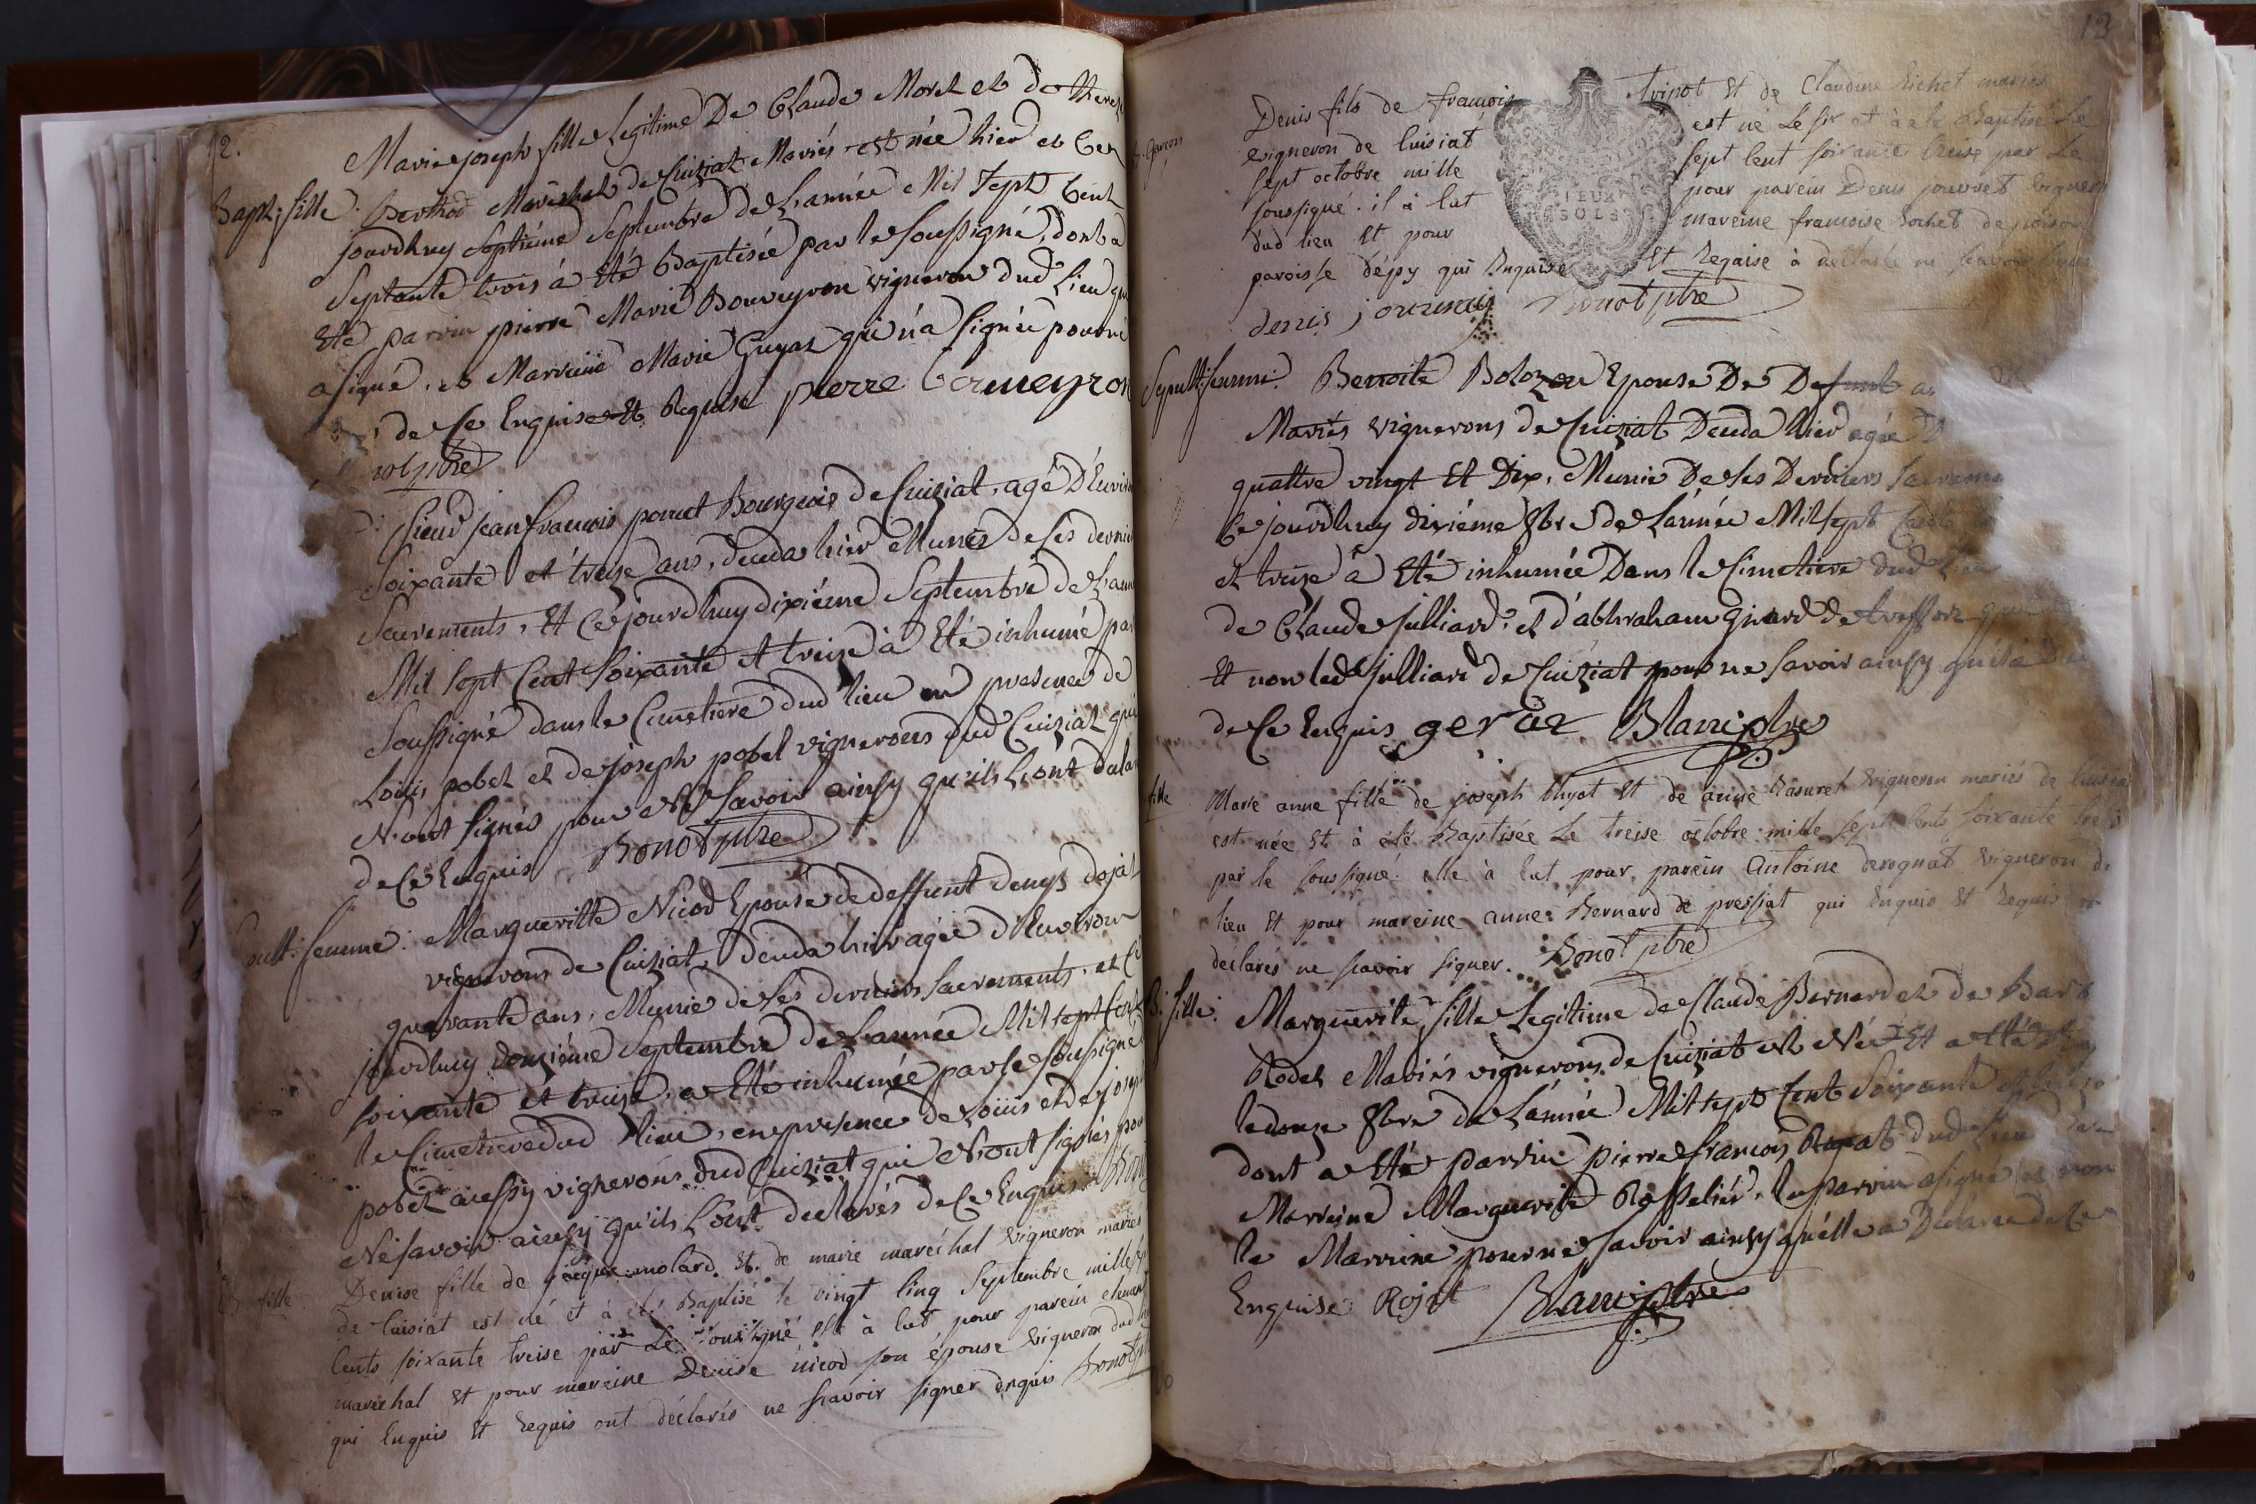 12.
Bapt: fille. Marie joseph fille Legitime De Claude Morel et de Therese
Berthod Marêchal de Cuiziat Mariés est née hier et Ce
jourdhuy Septiéme Septembre de L'année Mil Sept Cent
Septante trois à Eté Baptisée par le Soussigné, dont a
Eté parvin pierre Marie Bouveyron vigneron dud Lieu qui
a signé. et Marreine Marie Guyat qui n'a signée pour ne
de Ce Enquise Et Requise pierre bouveyron
ptre
Sieur jean francois ponnet Bourgeois de Cuiziat, agé D'Environ
Soixante et treize ans, deceda hier Munis de ses dernier
Sacrements, Et Ce jourdhuy dixiéme Septembre de L'anné
Mil Sept Cent Soixante et treize à Eté inhumé par
Soussigné dans le Cimetiere dud lieu en presence de
Loüis pobel et de joseph pobel vignerons dud Cuiziat qui
N'ont signés pour Ne Savoir ainsy qu'ils L'ont
de Ce Enquis Bonot ptre
femme: Margueritte Nicod Epouse de deffunt denys dojat
vignerons de Cuiziat, deceda hier agée d'Environ
quarante ans, Munie de ses derniers Sacrements, et Ce
jourdhuy douziéme Septembre de L'année Mil sept Cent
soixante et treize, a Eté inhumée par le Soussigné
le Cimetiere dud lieu, en presence de Loüis et de joseph
pobel aussy vignerons dud Cuiziat qui N'ont signés pour
Ne Savoir ainsy qu'ils L'ont declarés de Ce Enquis Bonot
fille Denise fille de jacque molard Et de marie maréchal vigneron mariés
de Cuisiat est né et à été Baptisé le vingt Cinq Septembre mille sept
Cents soixante treise par Le Soussigné Elle à Eut pour parein
maréchal et pour mareine Denise nicod son épouse vigneron dud lieu
qui Enquis Et Requis ont déclarés ne scavoir signer enquis Bonot ptre
13
garçon Denis fils de francois Tripot Et de Claudine Richet mariés
vigneron de Cuisiat est né Le six et à été Baptisé Le
sept octobre mille sept Cent soixante treise par Le
soussigné. il à Eut pour parein Denis jouvret vigneron
dud lieu Et pour mareine francoise Rochet de
paroisse d'épy qui Enquise Et Requise à declaré ne scavoir signer
denis Bonot ptre
DEUX
SOLS
Sepult: femme: Benoite Bolozon Epouse De Defunt
Mariés vignerons de Cuiziat Deceda hier agée D
quattre vingt Et Dix, Munie De ses Derniers Sacreme
Ce jourdhuy dixiéme 8bre de L'année Mil sept Cent
et treize à Eté inhumée Dans le Cimetiere dud Lieu
de Claude julliard, et d'abhraham girard de treffort qui
Et non led julliard de Cuiziat pour ne savoir ainsy qu'il a
de Ce Enquis Blanc ptre
fille Marie anne fille de joseph thyot Et de anne Vasuret vigneron mariés de Cuisiat
est née Et à été Baptisée Le treise octobre mille Sept Cents soixante treis
par le soussigné. elle à Eut pour parein antoine derognat vigneron de
lieu Et pour mareine anne Bernard de pressiat qui Enquis Et Requis
declarés ne scavoir signer. Bonot ptre
B: fille: Marguerite, fille Legitime de Claude Bernard et de Barb
Rodet Mariés vignerons de Cuiziat est Née Et a Eté
le douze 8bre de L'année Mil sept Cent Soixante et treize
dont a Eté parvin pierre francois Rojat dud Lieu
Marreine Marguerite Rosselier, le parvin a signé et non
la Marreine pour ne Savoir ainsy qu'elle a Déclaree de Ce
Enquise Rojat Blanc ptre